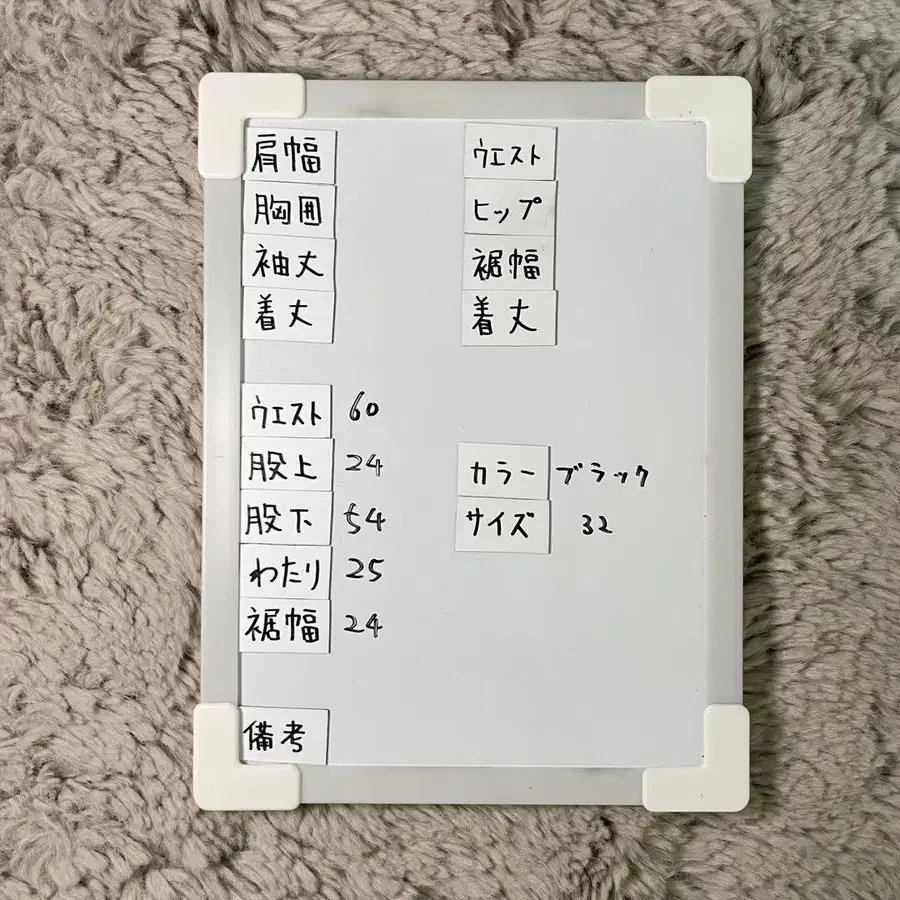 肩幅
胸囲
袖丈
着丈
ウエスト
ヒップ
裾幅
着丈
ウエスト 60
股上 24
股下 54
わたり 25
裾幅 24
カラー ブラック
サイズ 32
備考